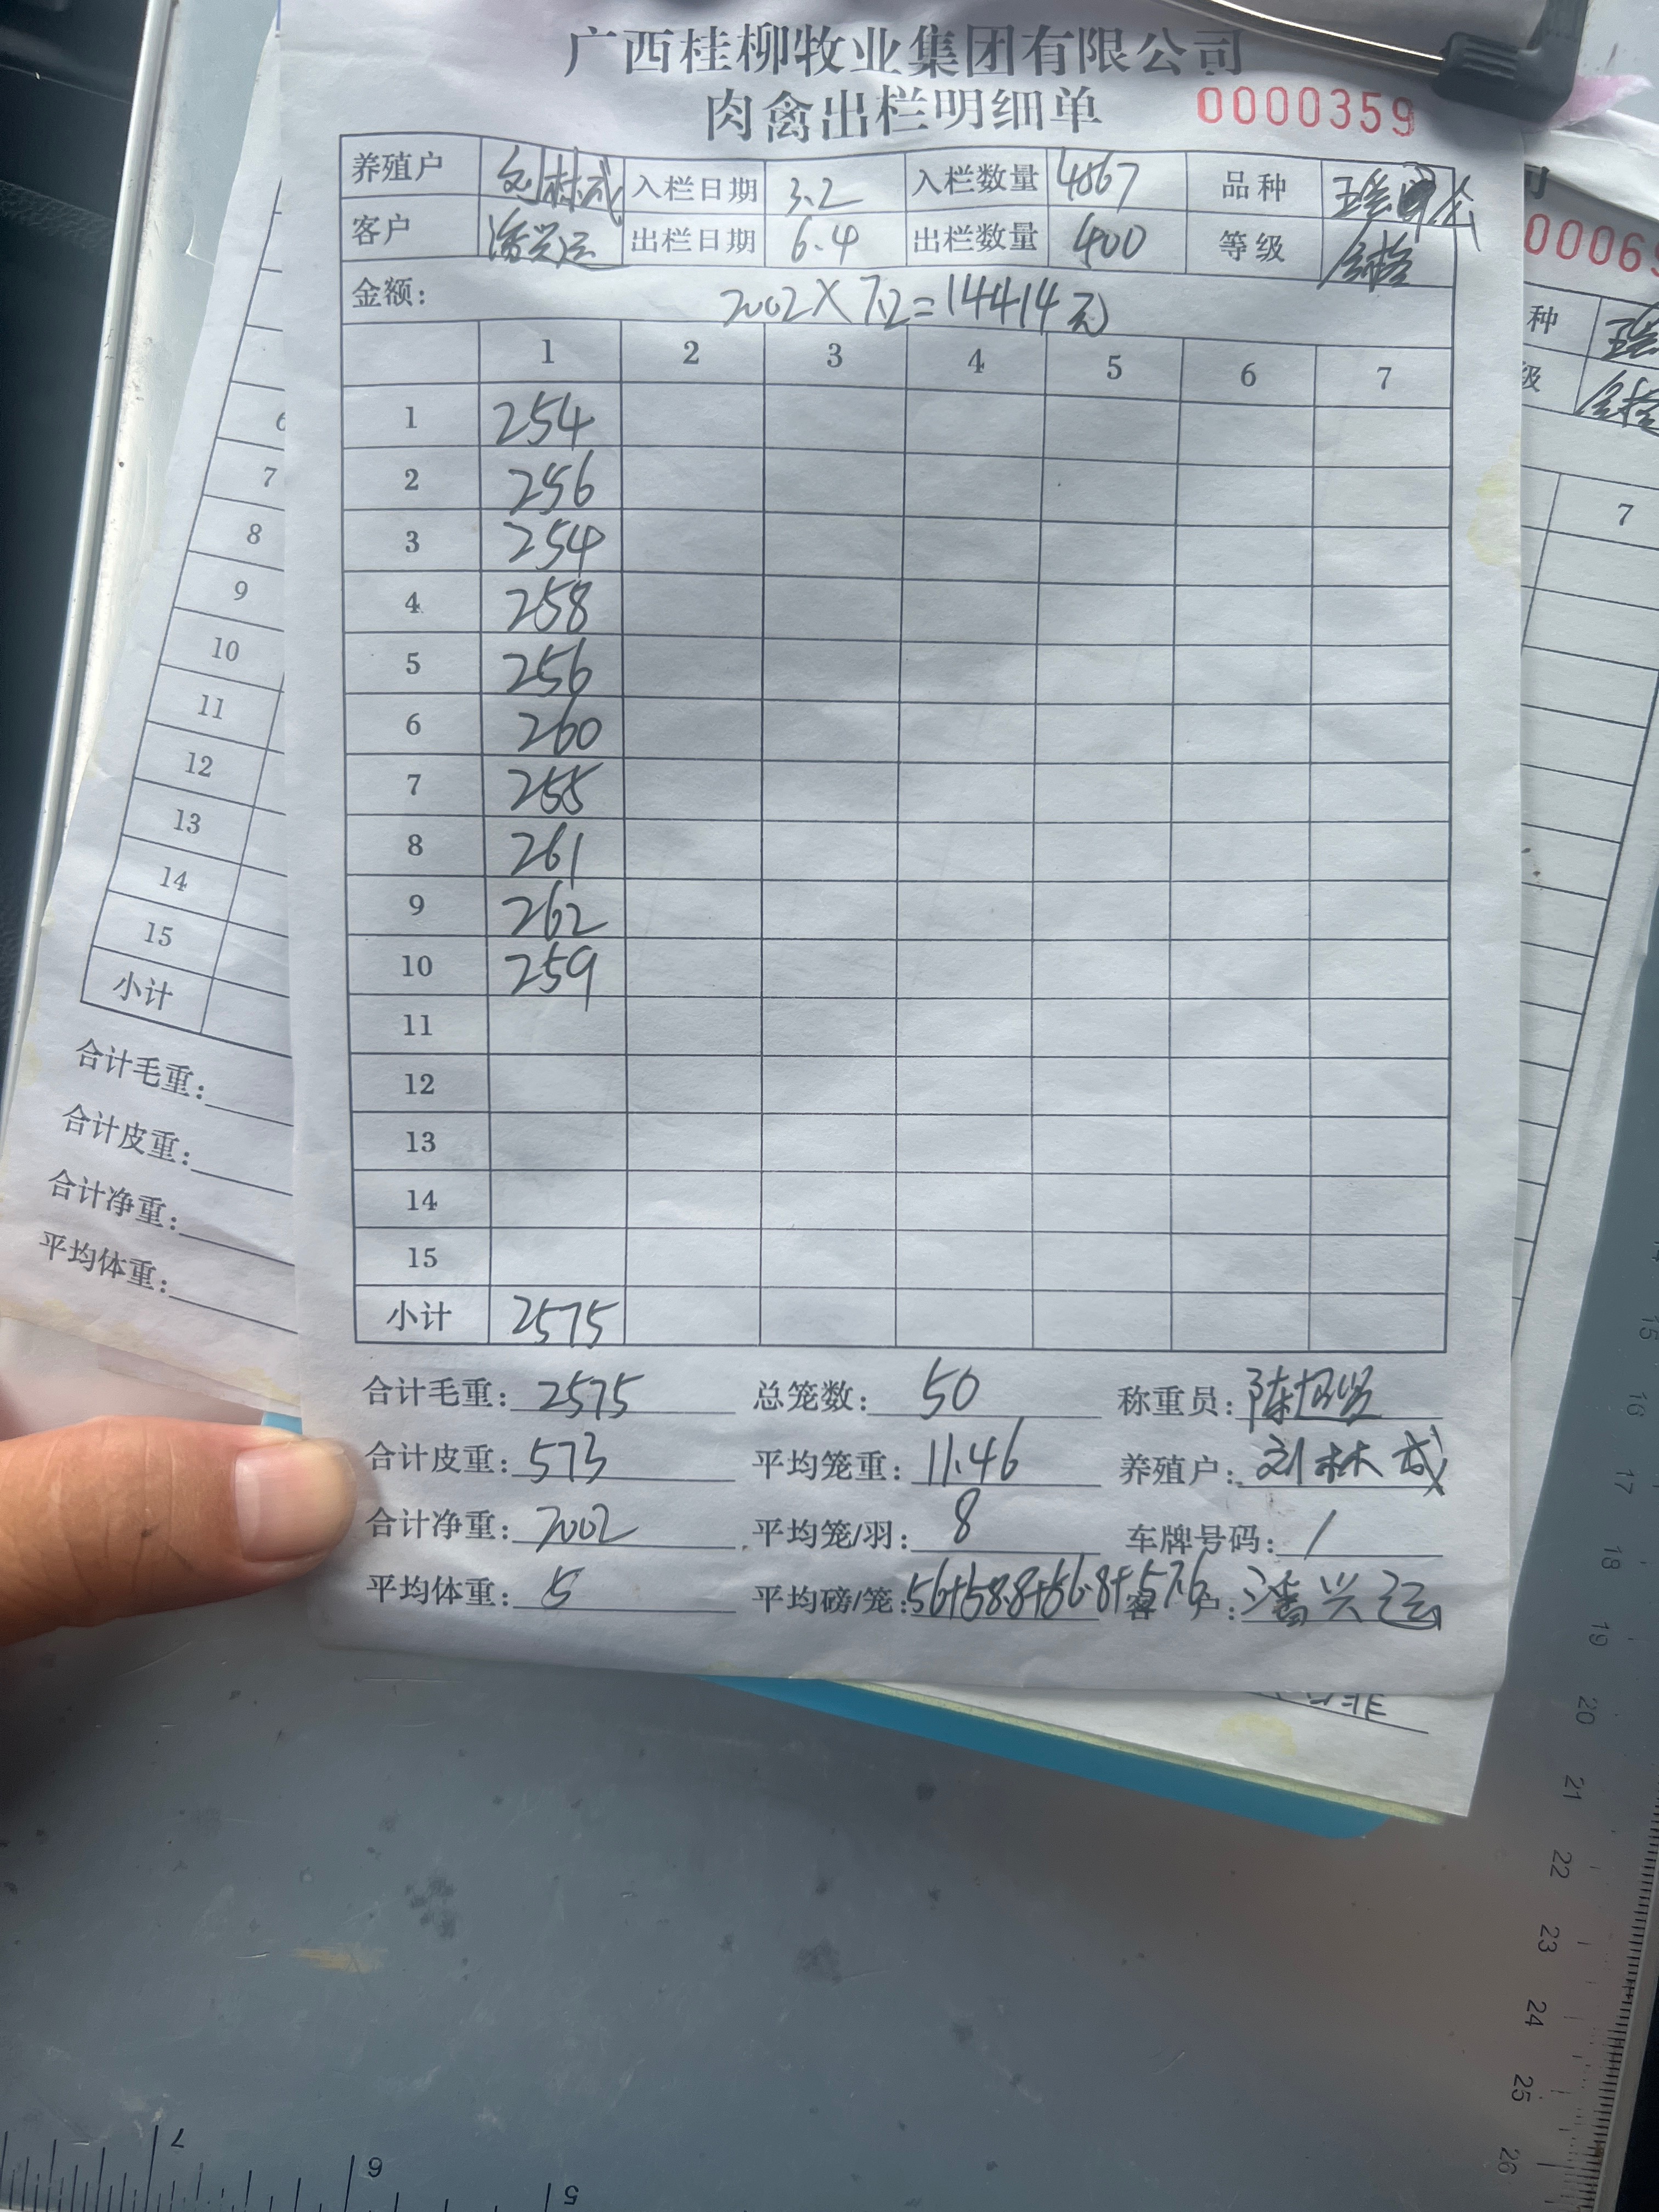 广西桂柳牧业集团有限公司
肉禽出栏明细单 0000359
养殖户 刘林武 入栏日期 3.2 入栏数量 4867 品种
客户 潘兴运 出栏日期 6.4 出栏数量 400 等级 合格
金额: 2002×7.2=14414元
1 2 3 4 5 6 7
1 254
2 256
3 254
4 258
5 256
6 260
7 255
8 261
9 262
10 259
11
12
13
14
15
小计 2575
合计毛重: 2575 总笼数: 50 称重员:
合计皮重: 573 平均笼重: 11.46 养殖户: 刘林武
合计净重: 2002 平均笼/羽: 8 车牌号码: /
平均体重: 5 平均磅/笼: 56+58.8+56.8+57.6 客户: 潘兴运
6
7
8
9
10
11
12
13
14
15
小计
合计毛重:
合计皮重:
合计净重:
平均体重:
司
00069
种
级 合格
7
15
16
17
18
19
20
21
22
23
24
25
26
7
6
5